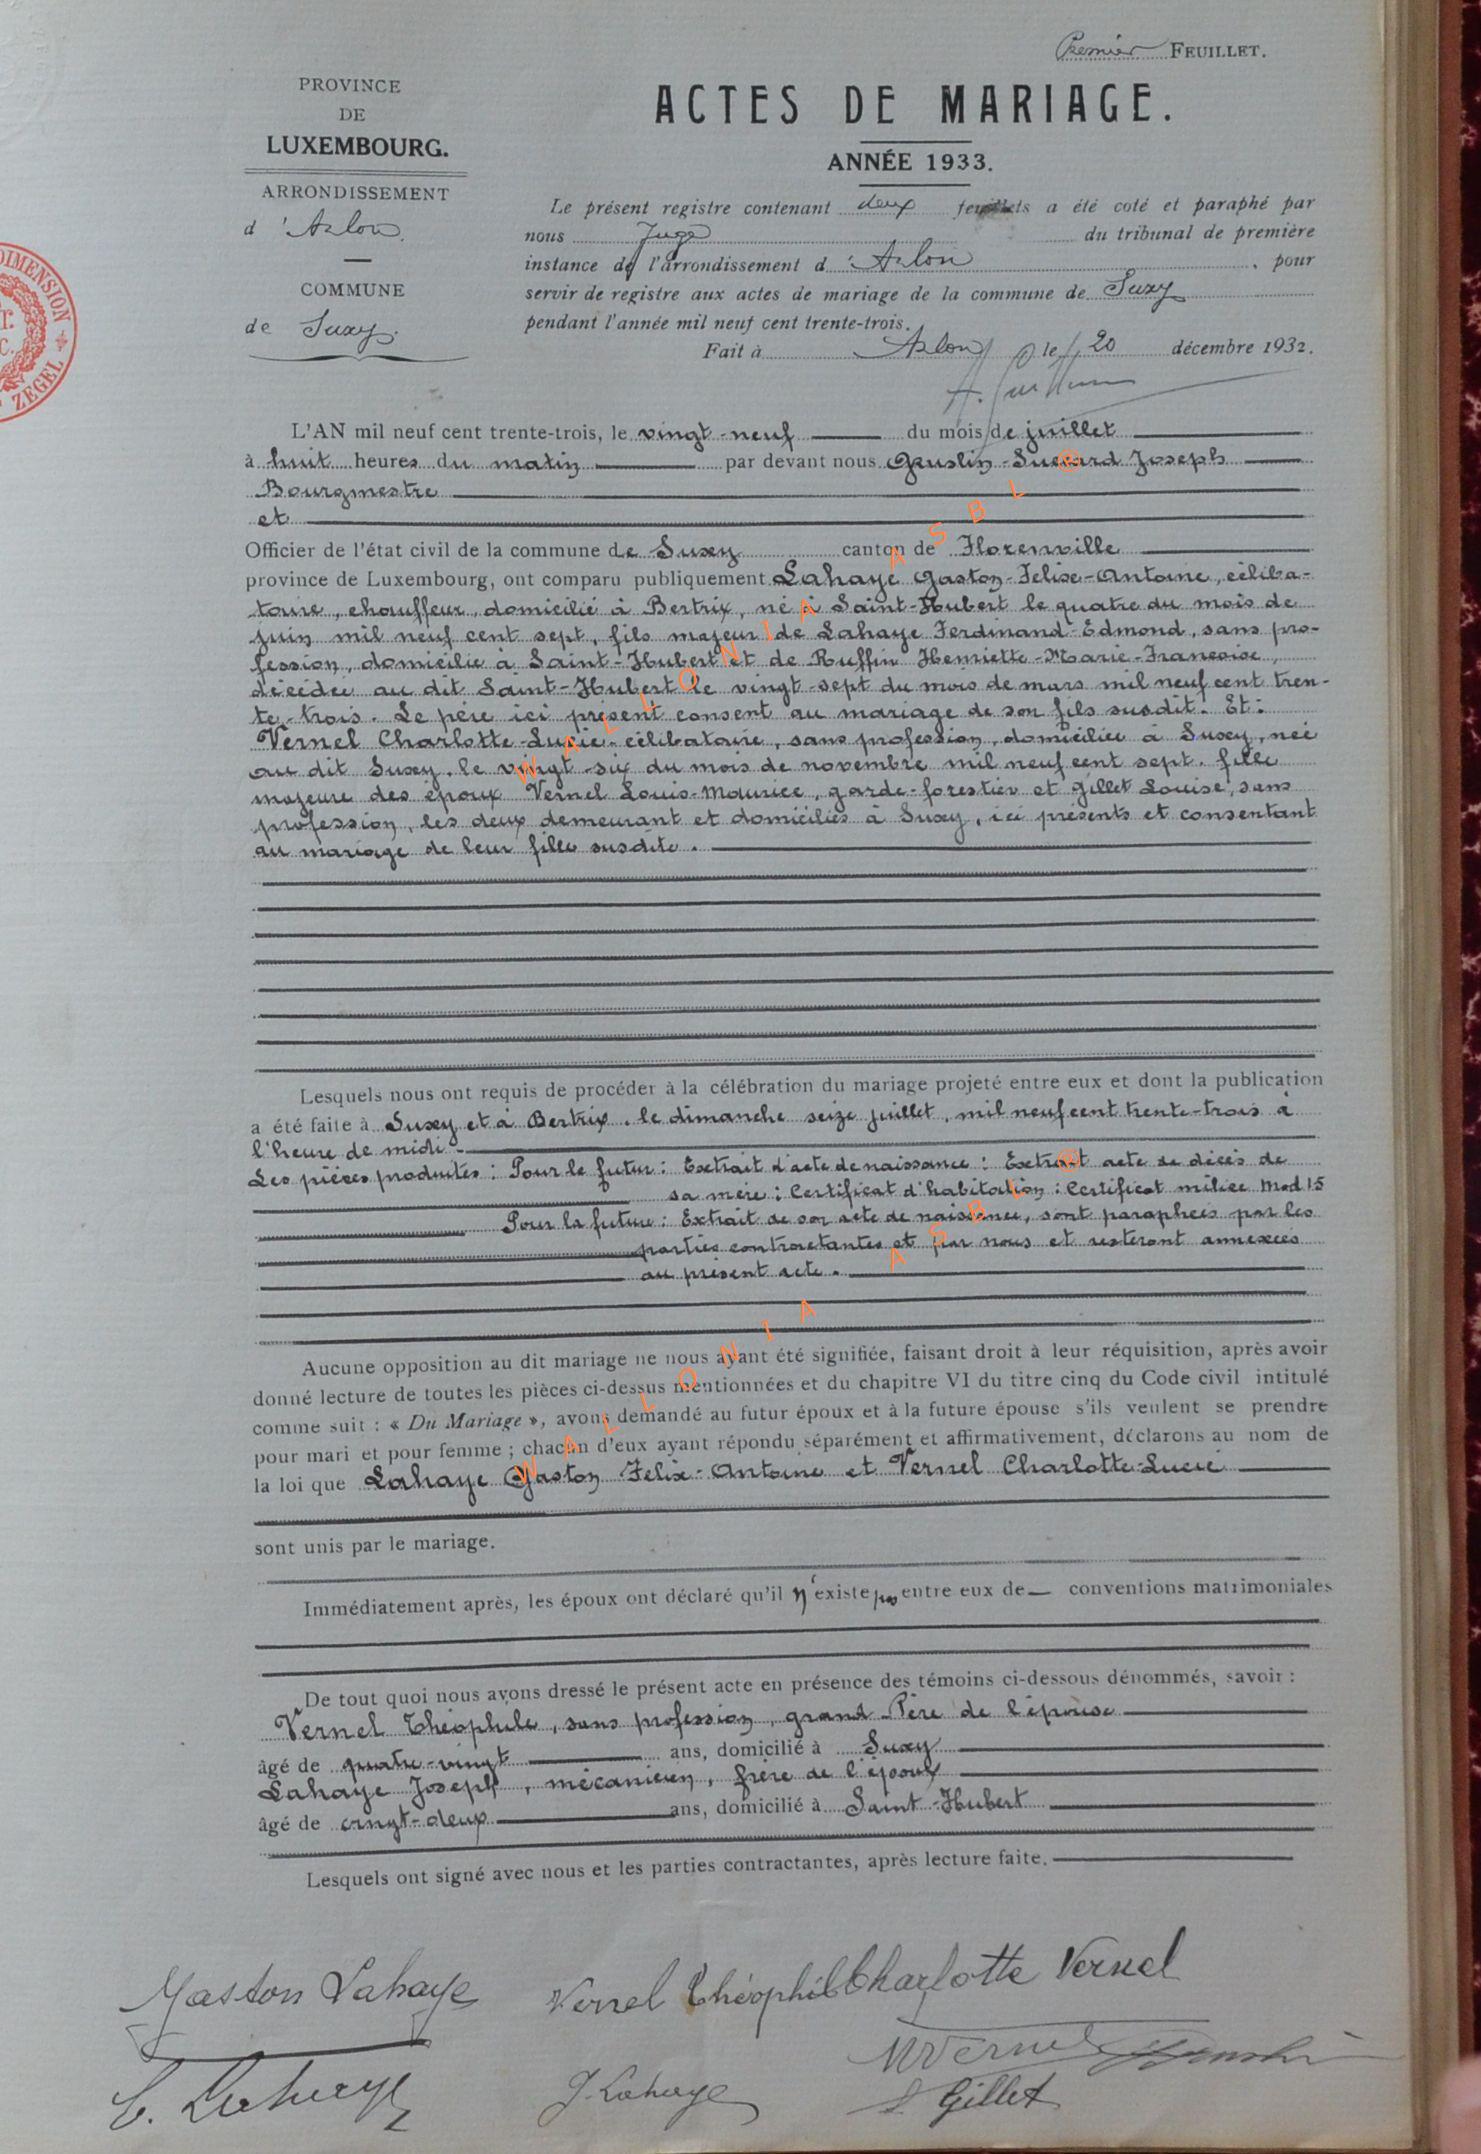 Premier FEUILLET.
PROVINCE
DE
LUXEMBOURG.
ARRONDISSEMENT
d'Arlon.
COMMUNE
de Suxy.
DIMENSION
ZEGEL
ACTES DE MARIAGE.
ANNÉE 1933.
Le présent registre contenant deux feuillets a été coté et paraphé par
nous Juge du tribunal de première
instance de l'arrondissement d'Arlon, pour
servir de registre aux actes de mariage de la commune de Suxy
pendant l'année mil neuf cent trente-trois.
Fait à Arlon le 20 décembre 1932.
L'AN mil neuf cent trente-trois, le vingt-neuf du mois de juillet
à huit heures du matin par devant nous Joseph
Bourgmestre
et
Officier de l'état civil de la commune de Suxy canton de Florenville
province de Luxembourg, ont comparu publiquement Lahaye Gaston-Felix-Antoine, céliba-
taire, chauffeur, domicilié à Bertrix, né à Saint-Hubert le quatre du mois de
juin mil neuf cent sept, fils majeur de Lahaye Ferdinand-Edmond, sans pro-
fession, domicilié à Saint-Hubert et de Ruffin Henriette-Marie-Françoise,
décédée au dit Saint-Hubert le vingt-sept du mois de mars mil neuf cent tren-
te-trois. Le père ici présent consent au mariage de son fils susdit. Et:
Vernel Charlotte-Lucie, célibataire, sans profession, domiciliée à Suxy, née
au dit Suxy, le vingt-six du mois de novembre mil neuf cent sept, fille
majeure des époux Vernel Louis-Maurice, garde-forestier et Gillet Louise, sans
profession, les deux demeurant et domiciliés à Suxy, ici présents et consentant
au mariage de leur fille susdite.
Lesquels nous ont requis de procéder à la célébration du mariage projeté entre eux et dont la publication
a été faite à Suxy et à Bertrix, le dimanche seize juillet, mil neuf cent trente-trois à
l'heure de midi.
Les pièces produites: Pour le futur: Extrait d'acte de naissance: Extrait acte de décès de
sa mère: Certificat d'habitation: Certificat milice Mod 15
Pour la future: Extrait de son acte de naissance, sont paraphées par les
parties contractantes et par nous et resteront annexées
au présent acte.
Aucune opposition au dit mariage ne nous ayant été signifiée, faisant droit à leur réquisition, après avoir
donné lecture de toutes les pièces ci-dessus mentionnées et du chapitre VI du titre cinq du Code civil intitulé
comme suit : « Du Mariage », avons demandé au futur époux et à la future épouse s'ils veulent se prendre
pour mari et pour femme ; chacun d'eux ayant répondu séparément et affirmativement, déclarons au nom de
la loi que Lahaye Gaston Felix-Antoine et Vernel Charlotte-Lucie
sont unis par le mariage.
Immédiatement après, les époux ont déclaré qu'il n'existe pas entre eux de conventions matrimoniales
De tout quoi nous avons dressé le présent acte en présence des témoins ci-dessous dénommés, savoir :
Vernel Théophile, sans profession, grand-Père de l'épouse
âgé de quatre-vingt ans, domicilié à Suxy
Lahaye Joseph, mécanicien, frère de l'époux
âgé de vingt-deux ans, domicilié à Saint-Hubert
Lesquels ont signé avec nous et les parties contractantes, après lecture faite.
Gaston Lahaye Vernel Théophile Charlotte Vernel
MVernel
E. Lahaye J. Lahaye L Gillet
WALLONIA ASBL ®
WALLONIA ASBL ®